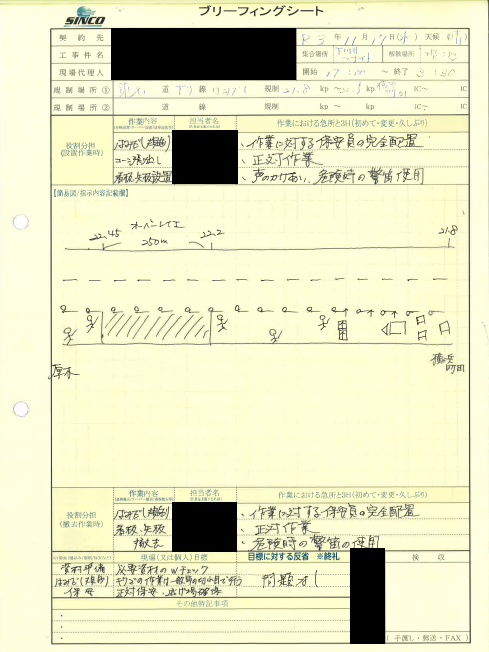 SINCO
ブリーフィングシート
契約先
R5年11月17日(金) 天候()
工事件名
集合場所 解散場所
現場代理人
開始 17:00 ～ 終了 3:30
規制場所① 道 下り 線 規制 21.8 kp ～ kp IC～ IC
規制場所② 道 線 規制 kp ～ kp IC～ IC
役割分担
(設置作業時)
作業内容 担当者名 作業における急所と3H(初めて・変更・久しぶり)
はみだし(規制) ・作業に対する保安員の完全配置
コーン張出し ・正対作業
看板、矢板設置 ・声のかけあい、危険時の警笛使用
【簡易図/指示内容記載欄】
オーバーレイ工
22.45 22.2 21.8
250m
厚木
横浜
町田
役割分担
(撤去作業時)
作業内容 担当者名 作業における急所と3H(初めて・変更・久しぶり)
はみだし(規制) ・作業に対する保安員の完全配置
看板、矢板 ・正対作業
撤去 ・危険時の警笛の使用
現場(又は個人)目標 目標に対する反省 ※終礼 検収
資材準備 必要資材のWチェック
はみだし(規制)
保安 正対保安、逃げ場確保
問題なし
その他特記事項
(手渡し・郵送・FAX)